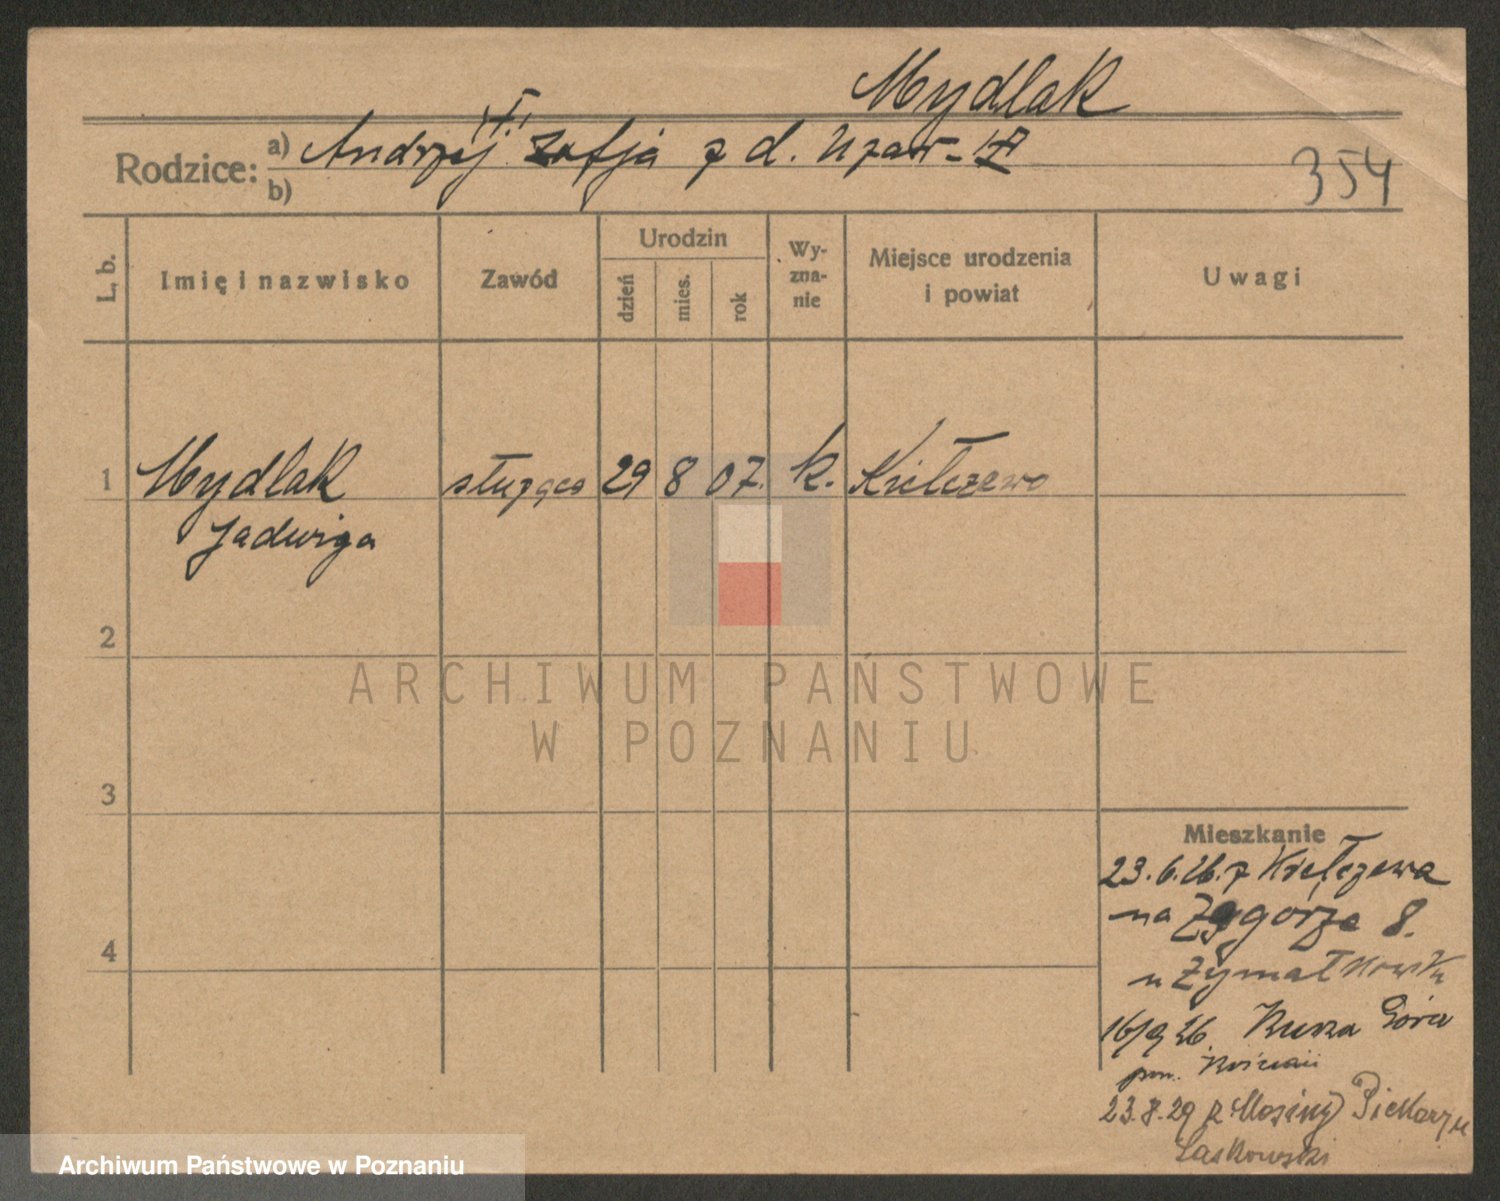 Mydlak
Rodzice: a) Andrzej Zofja z d.
b)
354
L. b.
Imię i nazwisko
Zawód
Urodzin
dzień
mies.
rok
Wy-
zna-
nie
Miejsce urodzenia
i powiat
Uwagi
1 Mydlak służąca 29 8 07. k. Kiełczewo
Jadwiga
2
3
4
Mieszkanie
23.6.26. z Kiełczewa
na Zagórze 8.
u
16/9 26 Góra
pow. Kościan
23.8.29 z Mosiny Piekarzu
Laskowski
ARCHIWUM PAŃSTWOWE
W POZNANIU
Archiwum Państwowe w Poznaniu